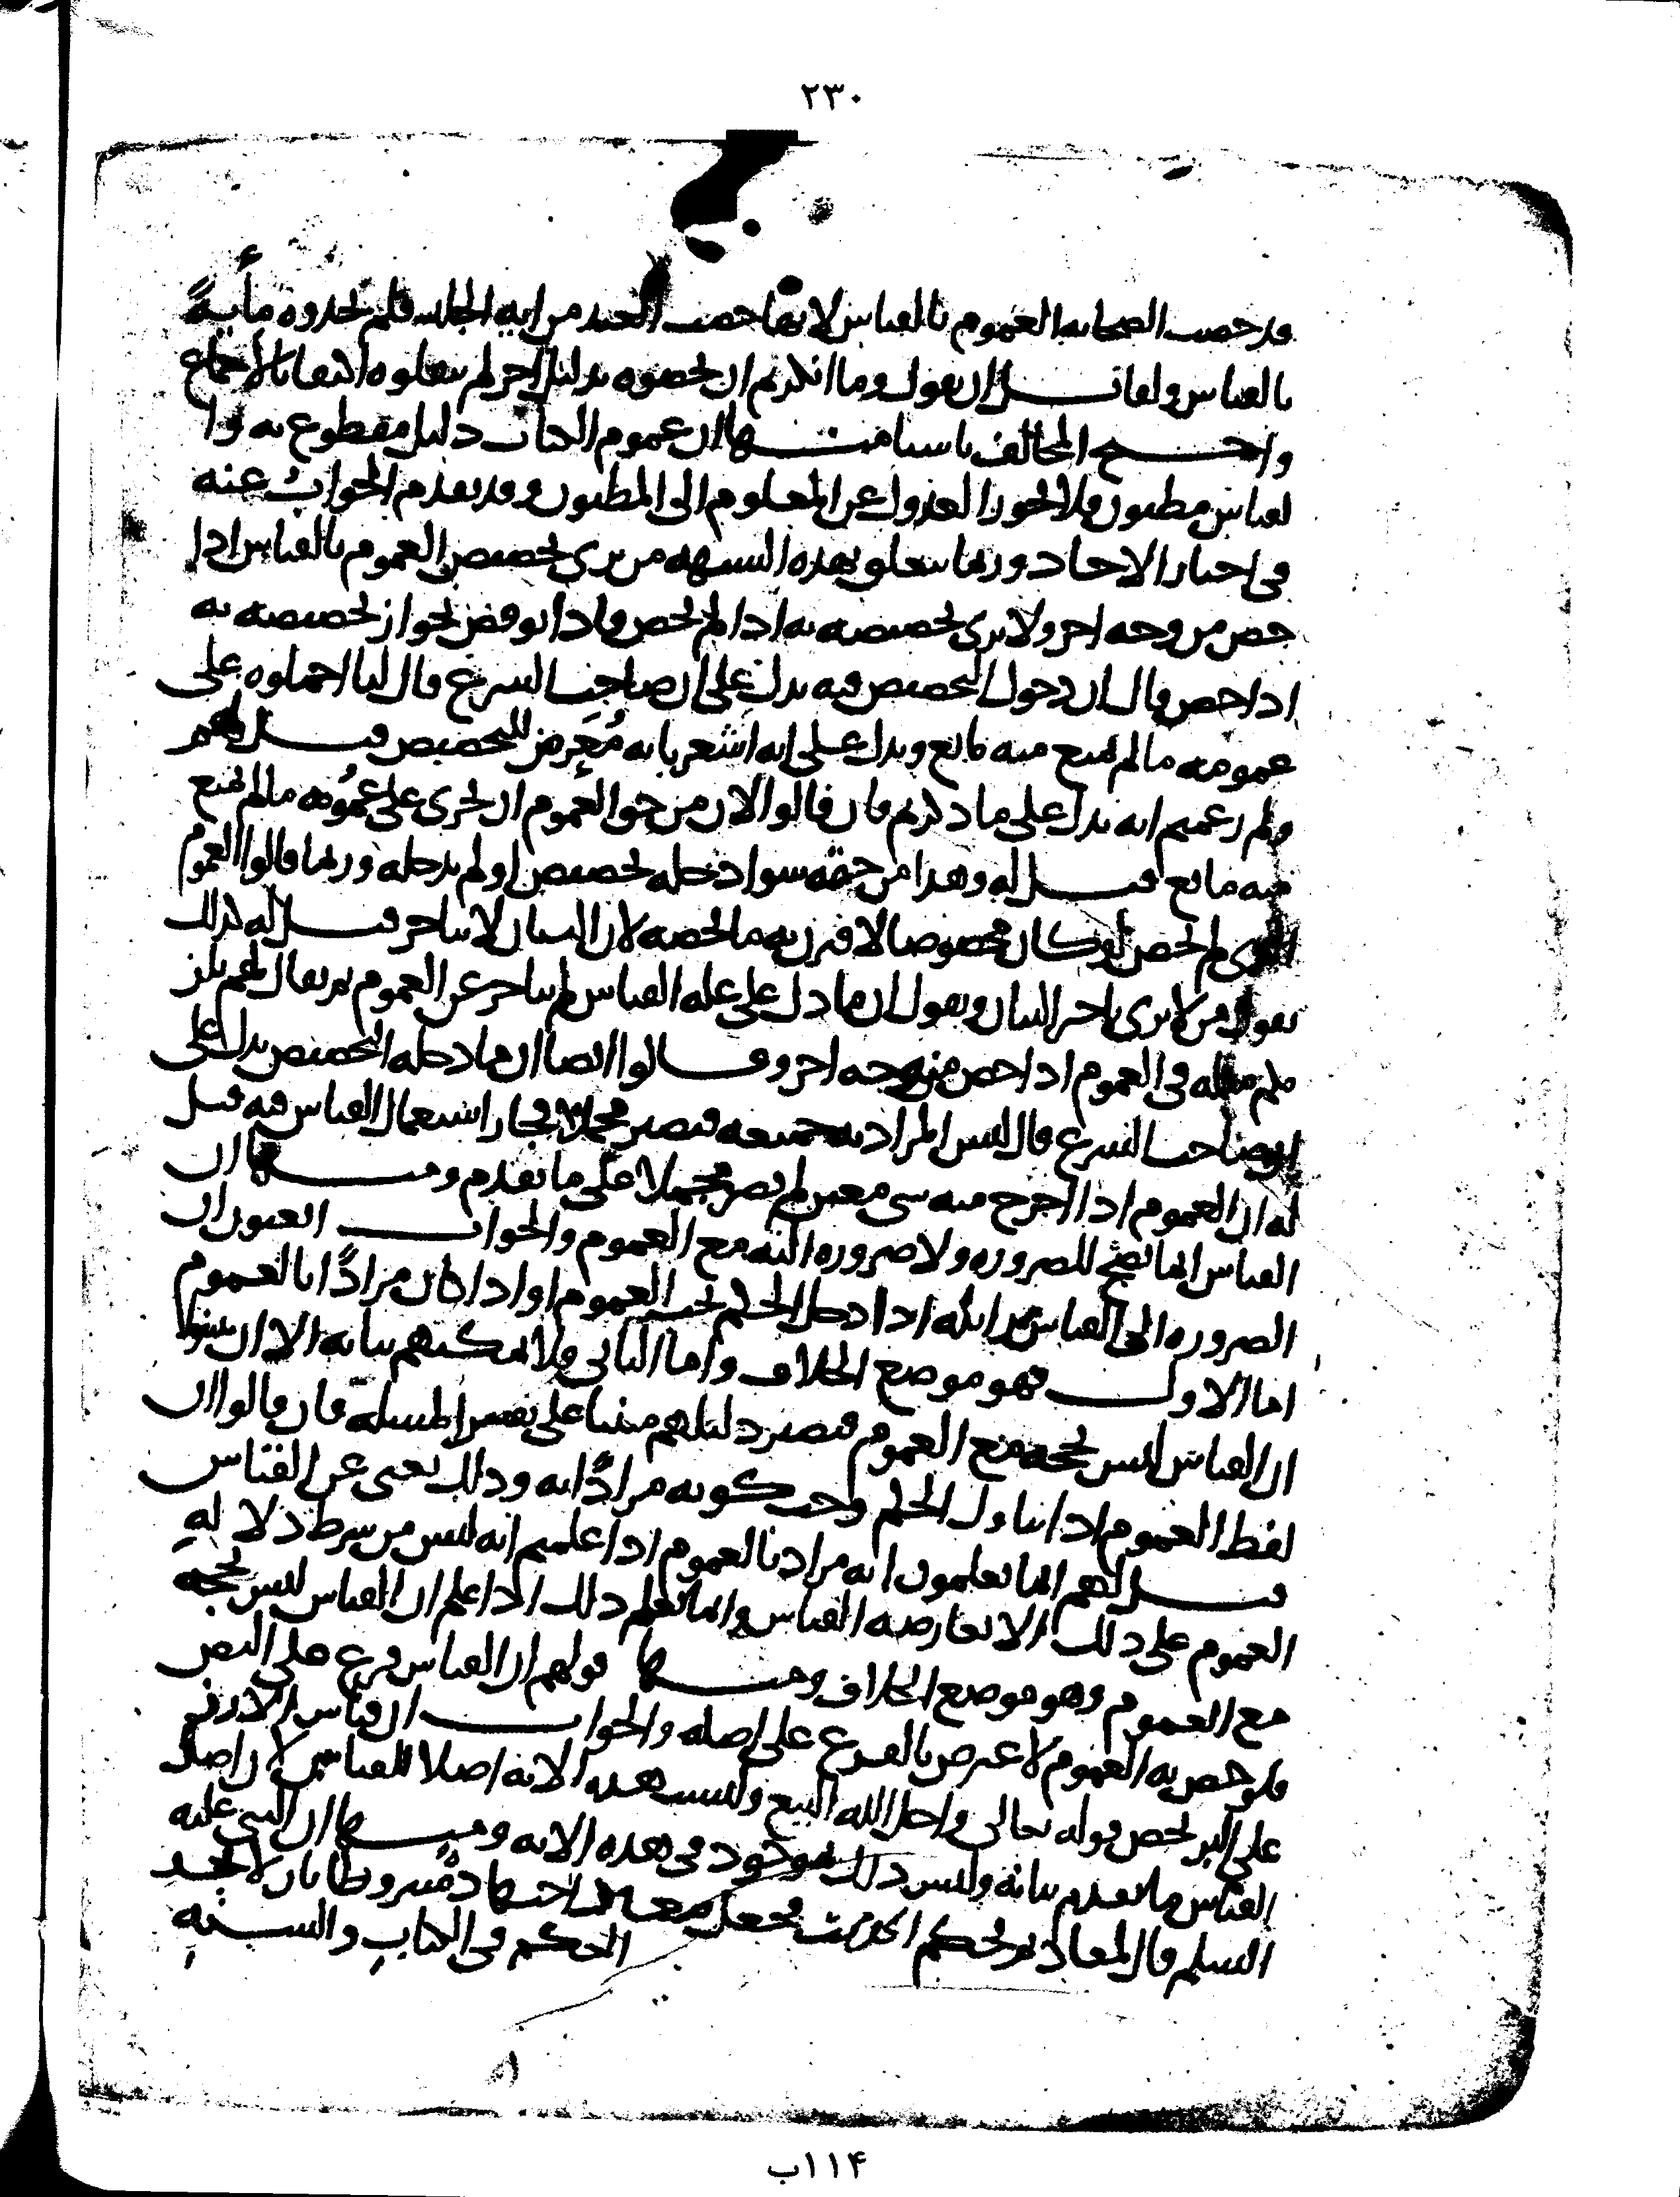 ٢٣٠
وقد خصت الصحابة العموم بالقياس لانها خصت العبد من اية الجلد فلم يحدوه مأيةً
بالقياس ولقائل ان يقول وما انكرتم ان يخصوه بدليل اخر لم ينقلوه اكتفا بالأجماع
واحتج المخالف باشيا منها ان عموم الكتاب دليل مقطوع به وا
لقياس مظنون فلا يجوز العدول عن المعلوم الى المظنون وقد تقدم الجوابُ عنه
في اخبار الاحاد وربما يتعلق بهذه الشبهة من يرى تخصيص العموم بالقياس اذا
خص من وجه اخر ولا يرى تخصيصه به اذا لم يخص فاذا نوقض بجواز تخصيصه به
اذا خص قال ان دخول التخصيص فيه يدل على ان صاحبَ الشرع قال لنا احملوه على
عمومه ما لم يمنع منه مانع ويدل على انه اشعر بانه مُعرض للتخصيص قيل لهم
ولم زعمتم انه يدل على ما ذكرتم فان قالوا لان من حق العموم ان يجرى على عمُومه ما لم يمنع
منه مانع قيل له وهذا من حقه سوا دخله تخصيص او لم يدخله وربما قالوا العموم
الذي لم يخص لو كان مخصوصا لاقترن به ما يخصه لان البيان لا يتاخر قيل له كذلك
يقول من لا يرى تاخر البيان ويقول ان ما دل على علة القياس لم يتاخر عن العموم ثم يقال لهم يلز
مكم مثله في العموم اذا خص من وجه اخر وقالوا ايضا ان ما دخله التخصيص يدل على
ان صاحب الشرع قال ليس المراد به جميعه فيصير مجملا فجاز استعمال القياس فيه قيل
له ان العموم اذا اخرج منه شي معين لم يصر مجملا على ما تقدم ومنها ان
القياس انما يصحُ للضرورة ولا ضرورة اليه مع العموم والجواب اتعنون ان
الضرورة الى القياس زايلة اذا دخل الحكم تحت العموم او اذا كان مرادًا بالعموم
اما الاول فهو موضع الخلاف واما الثاني فلا يمكنهم بيانه الا ان يبينوا
ان القياس ليس بحجة مع العموم فيصير دليلهم مبنيا على نفس المسلة فان قالوا ان
لفظ العموم اذا تناول الحكم وجب كونه مرادًا به وذلك يغنى عن القياس
قيل لهم انما تعلمون انه مراد بالعموم اذا علمتم انه ليس من شرط دلالةِ
العموم على ذلك الا تعارضه القياس وانما نعلم ذلك اذا علم ان القياس ليس بحجة
مع العموم وهو موضع الخلاف ومنها قولهم ان القياس فرع على النص
فلو خص به العموم لاعترض بالفرع على اصله والجواب ان قياس الارز
على البر يخص قوله تعالى واحل الله البيع وليست هذه الاية اصلا للقياس لان اصل
القياس ما تقدم بيانه وليس ذلك بموجود في هذه الاية ومنها ان النبي عليه
السلم قال لمعاذ بم تحكم الحديث فجعل معاذ اجتهاده مشروطا بان لا يجد
الحكم في الكتابِ والسنةِ
١١۴ب